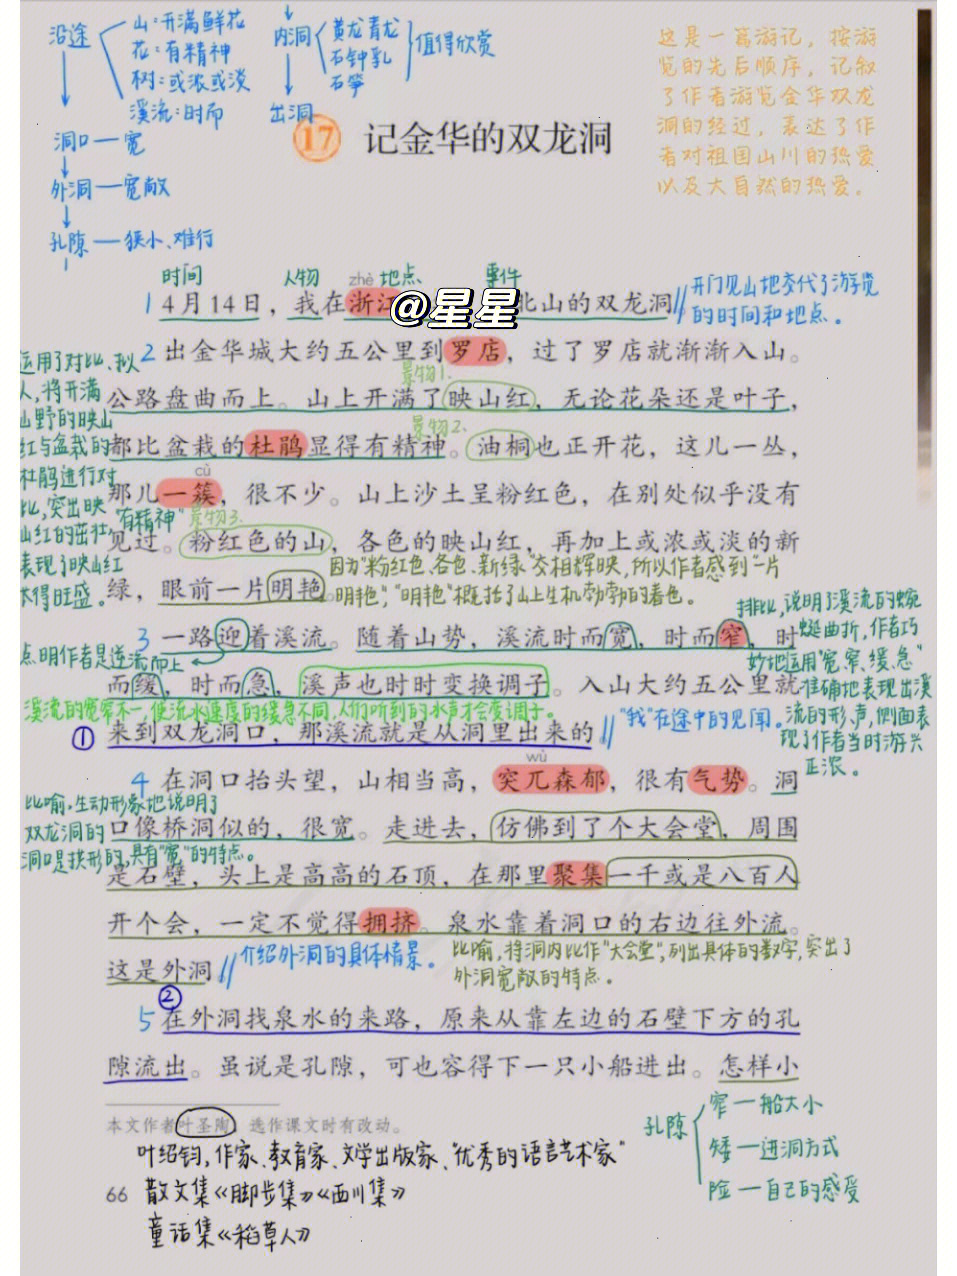 沿途
山:开满鲜花
花:有精神
树:或浓或淡
溪流:时而
洞口一宽
外洞一宽敞
孔隙一狭小、难行
内洞
黄龙青龙
石钟乳
石笋
值得欣赏
出洞
这是一篇游记，按游
览的先后顺序，记叙
了作者游览金华双龙
洞的经过，表达了作
者对祖国山川的热爱
以及大自然的热爱。
17 记金华的双龙洞
时间 人物 zhè 地点 事件
1 4月14日，我在浙江
@星星
北山的双龙洞
开门见山地交代了游览
的时间和地点。
2 出金华城大约五公里到罗店，过了罗店就渐渐入山。
景物1.
公路盘曲而上。山上开满了映山红，无论花朵还是叶子，
景物2.
都比盆栽的杜鹃显得有精神。油桐也正开花，这儿一丛，
cù
那儿一簇，很不少。山上沙土呈粉红色，在别处似乎没有
"有精神" 景物3.
见过。粉红色的山，各色的映山红，再加上或浓或淡的新
绿，眼前一片明艳。
运用了对比、拟
人，将开满
山野的映山
红与盆栽的
杜鹃进行对
比，突出映
山红的茁壮，
表现了映山红
长得旺盛。
因为"粉红色、各色、新绿"交相辉映，所以作者感到"一片
明艳"，"明艳"概括了山上生机勃勃的春色。
3 一路迎着溪流。随着山势，溪流时而宽，时而窄，时
点明作者是逆流而上
而缓，时而急，溪声也时时变换调子。入山大约五公里就
溪流的宽窄不一，使流水速度的缓急不同，人们听到的水声才会变调子。
① 来到双龙洞口，那溪流就是从洞里出来的
"我"在途中的见闻。
排比，说明了溪流的蜿
蜒曲折，作者巧
妙地运用"宽、窄、缓、急"
准确地表现出溪
流的形、声，侧面表
现了作者当时游兴
正浓。
wù
4 在洞口抬头望，山相当高，突兀森郁，很有气势。洞
口像桥洞似的，很宽。走进去，仿佛到了个大会堂，周围
是石壁，头上是高高的石顶，在那里聚集一千或是八百人
开个会，一定不觉得拥挤。泉水靠着洞口的右边往外流。
这是外洞
比喻，生动形象地说明了
双龙洞的
洞口是拱形的，具有"宽"的特点。
介绍外洞的具体情景。
比喻，将洞内比作"大会堂"，列出具体的数字，突出了
外洞宽敞的特点。
②
5 在外洞找泉水的来路，原来从靠左边的石壁下方的孔
隙流出。虽说是孔隙，可也容得下一只小船进出。怎样小
本文作者叶圣陶，选作课文时有改动。
孔隙
窄一船大小
矮一进洞方式
险一自己的感受
叶绍钧，作家、教育家、文学出版家、"优秀的语言艺术家"
66 散文集《脚步集》《西川集》
童话集《稻草人》